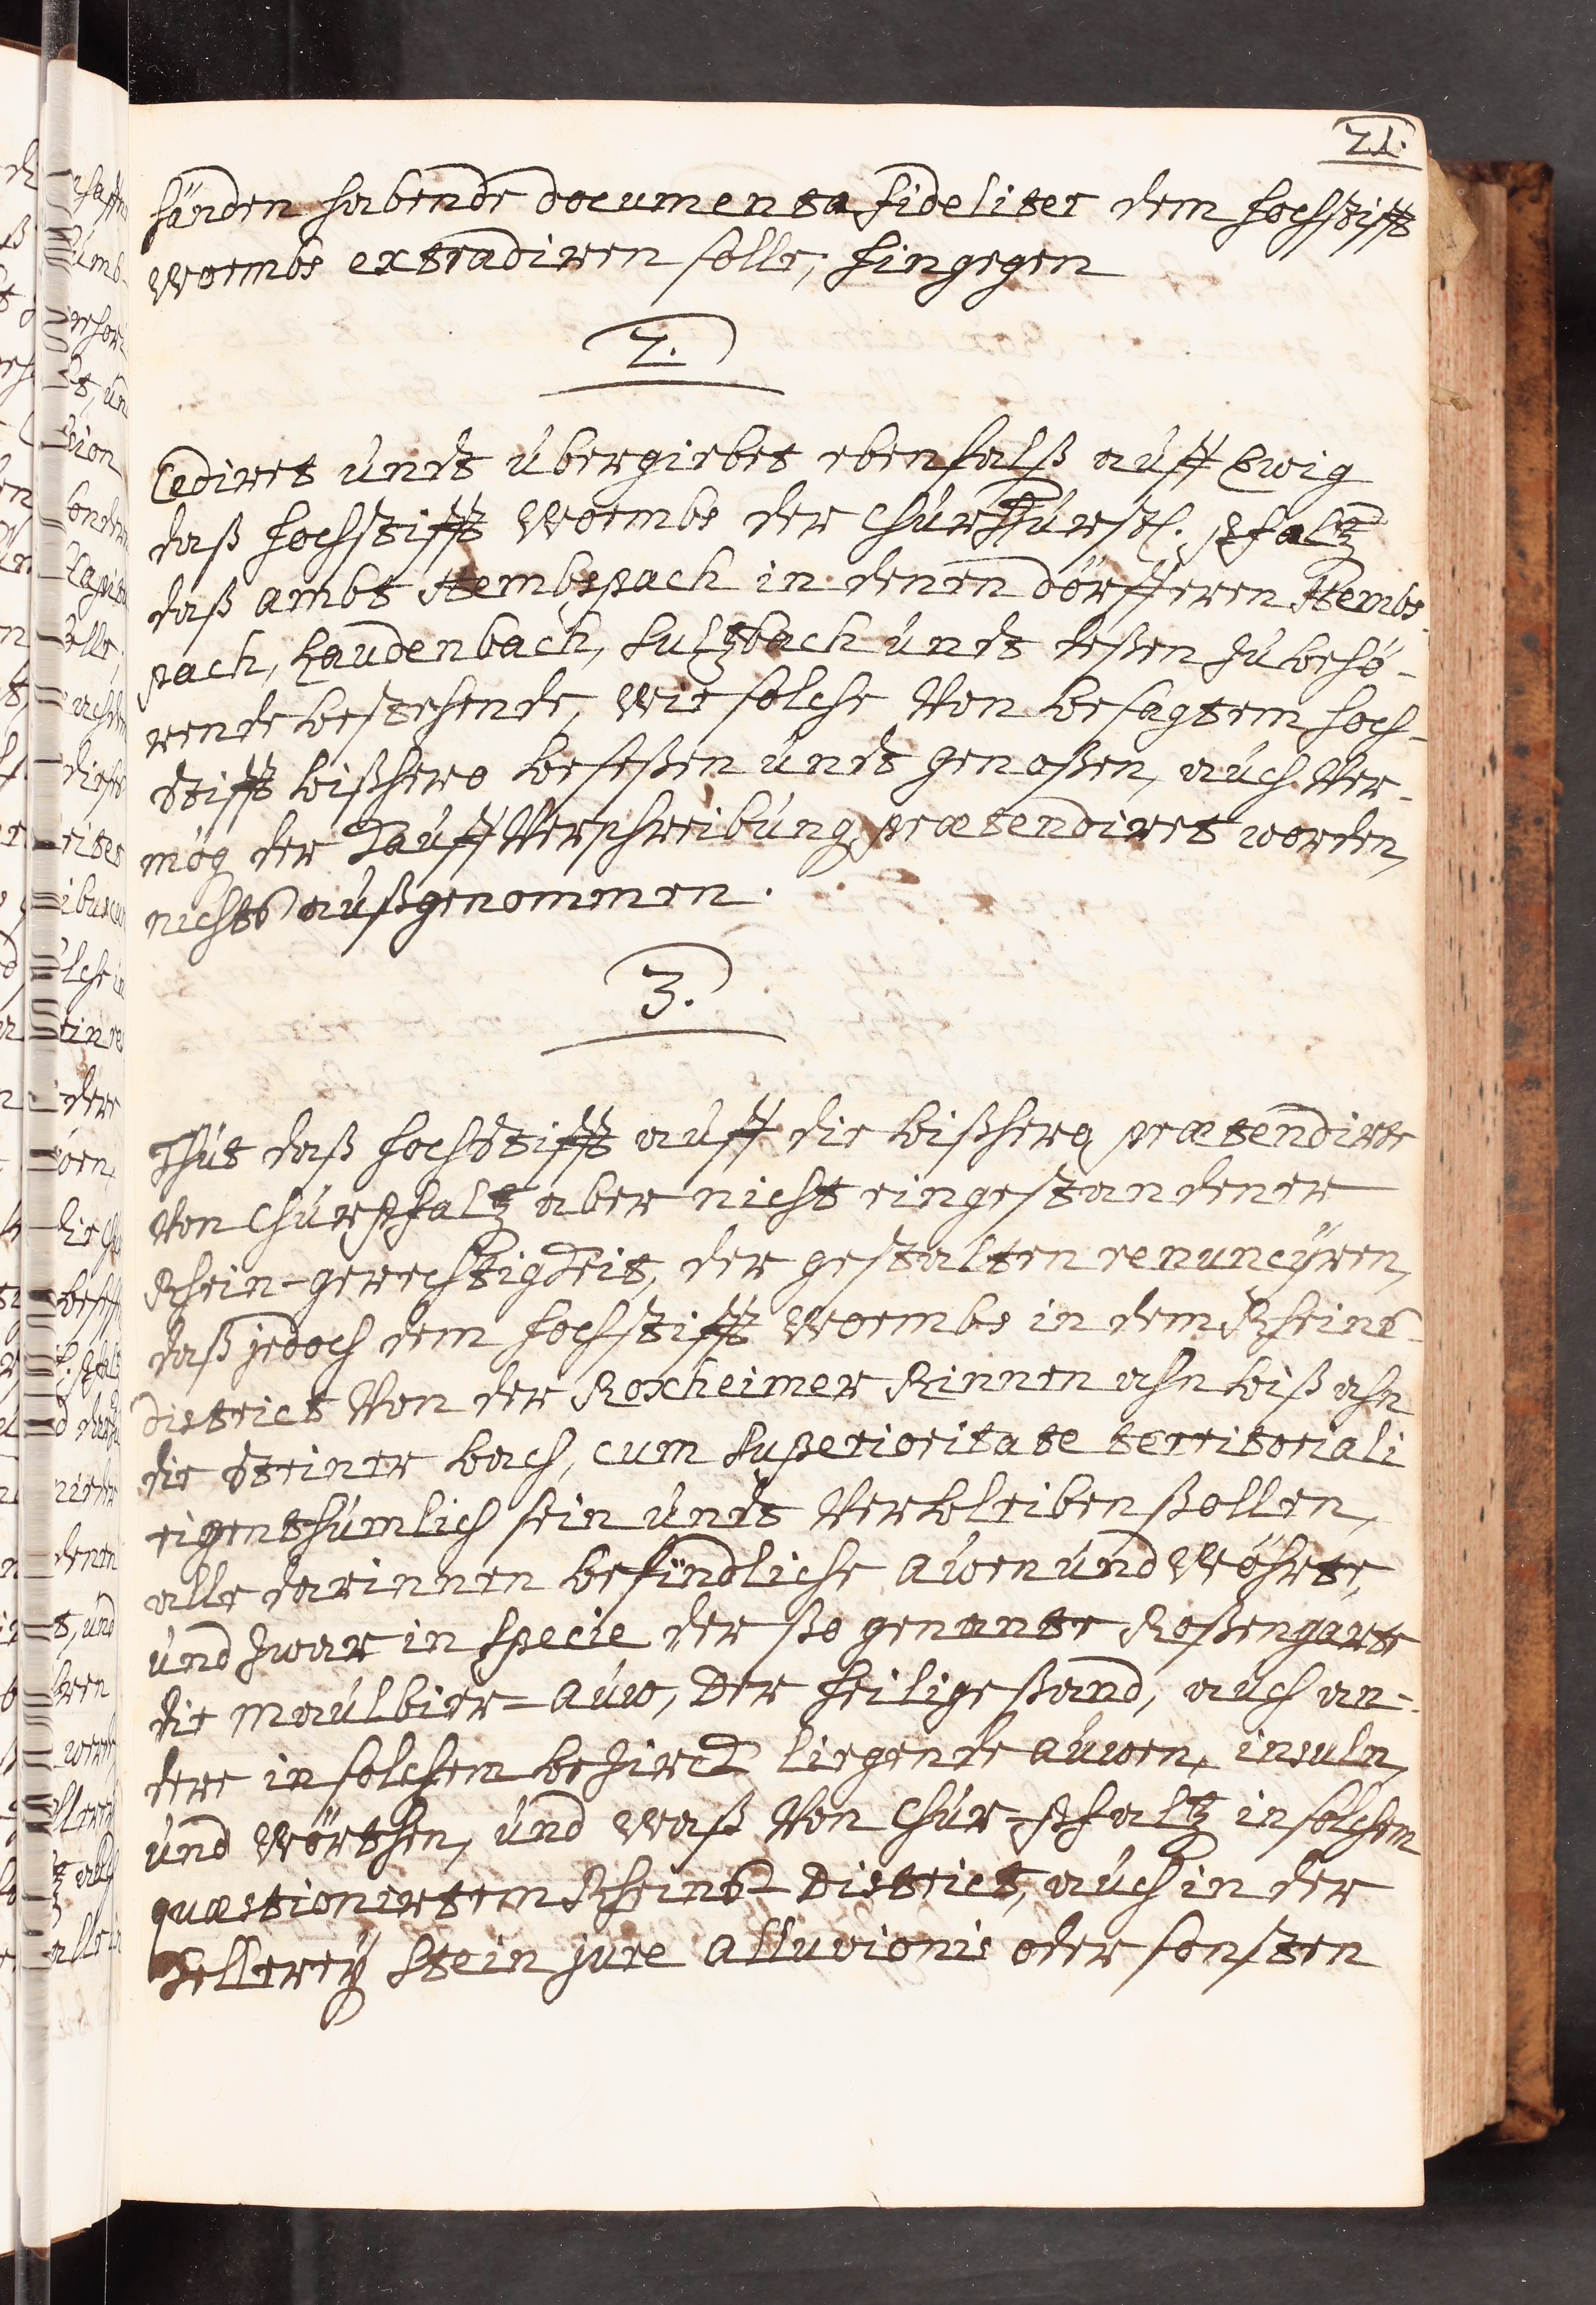 21.
händen habende documenta fideliter dem hochstifft
Wormbs extradiren solle, hingegen
2.
Cediret undt übergiebet ebenfalß auff Ewig
daß hochstifft Wormbs der Churfürstl. Pfaltz
daß ambt Hembspach in denen dörfferen Hembs-
pach, Laudenbach, Sultzbach undt deßen zubehö-
rende bestehende, wie solche Von besagtem hoch-
Stifft bißhero beseßen undt genoßen, auch Ver-
mög der Kauff Verschreibung prætendiret worden,
nichts außgenommen.
3.
Thut daß hochStifft auff die bißhero prætendirte
Von Churpfaltz aber nicht eingestandener
Rhein-gerechtigkeit, der gestalten renuncÿren,
daß jedoch dem hochstifft Wormbs in dem Rheins-
District Von der Roxheimer Rinnen ahn biß ahn
die Steiner bach, cum Superioritate territoriali
eigenthümlich sein undt Verbleiben ßollen,
alle darinnen befindliche Auen und Wöhrte,
und zwar in Specie der ßo genante Roßengarte
die Maulbier-Auw, Der heilige ßand, auch an-
dere in solchem bezirck liegende Auwen, insuln,
und Wörthen, und Waß Von Chur-Pfaltz in solchem
quæstionirtem Rheins-District, auch in der
Kellereÿ Stein jure alluvionis oder sonsten